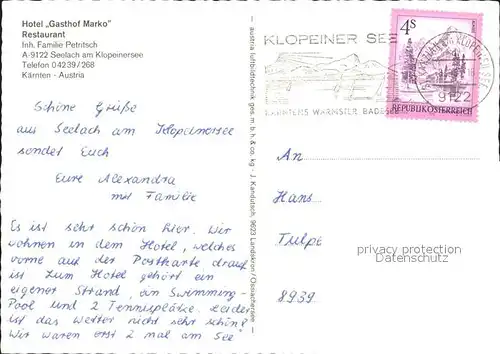 Hotel „Gasthof Marko"
Restaurant
Inh. Familie Petritsch
A-9122 Seelach am Klopeinersee
Telefon 04239/268
Kärnten - Austria
Schöne Grüße
aus Seelach am Klopeinersee
sendet Euch
Eure Alexandra
mit Familie
Es ist sehr schön hier. Wir
wohnen in dem Hotel, welches
vorne auf der Postkarte drauf
ist. Zum Hotel gehört ein
eigener Strand, ein Swimming-
Pool und 2 Tennisplätze. Leider
ist das Wetter nicht sehr schön!
Wir waren erst 2 mal am See
austria luftbildtechnik ges.m.b.h.& co. kg - J. Kandutsch, 9523 Landskron/Ossiachersee
KLOPEINER SEE
KÄRNTENS WÄRMSTER BADESEE
4S
REPUBLIK ÖSTERREICH
AM KLOPEINER SEE
9122
An
Hans
Tulpe
8939
privacy protection
Datenschutz